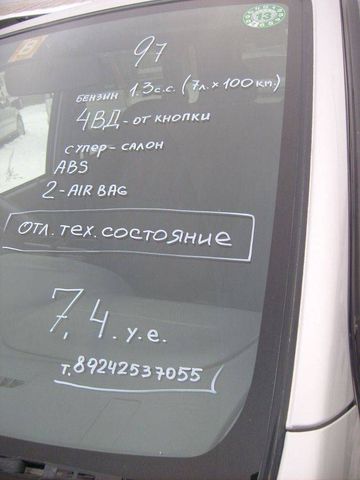 97
БЕНЗИН 1.3 с.с. (7л. х 100 км.)
4ВД - ОТ КНОПКИ
СУПЕР - САЛОН
ABS
2 - AIR BAG
ОТЛ. ТЕХ. СОСТОЯНИЕ
7,4. у.е.
т. 89242537055